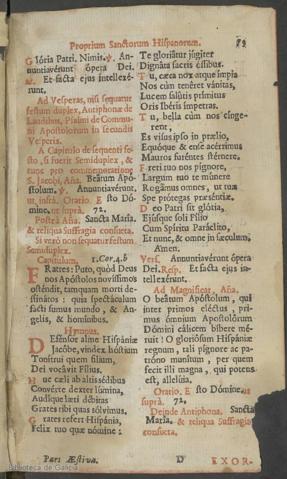 Proprium Sanctorum Hispanorum. 73
Glória Patri. Nimis. ℣. An-
nuntiavérunt ópera Dei.
℟. Et facta ejus intellexé-
runt.
Ad Vesperas, nisi sequatur
festum duplex, Antiphonæ de
Laudibus, Psalmi de Commu-
ni Apostolorum in secundis
Vesperis.
A Capitulo de sequenti fe-
sto, si fuerit Semiduplex, &
tunc pro commemoratione
S. Jacobi, Aña. Beátum Apo-
stolum. ℣. Annuntiavérunt.
ut infrà. Oratio. Esto Dó-
mine. ut suprà. 72.
Postea Aña. Sancta María.
& reliqua Suffragia consueta.
Si verò non sequatur festum
Semiduplex.
Capitulum. 1. Cor. 4. b
FRatres: Puto, quòd Deus
nos Apóstolos novíssimos
osténdit, tamquam morti de-
stinátos: quia spectáculum
facti sumus mundo, & An-
gelis, & homínibus.
Hymnus.
DEfensor alme Hispániæ
Jacobe, vindex hóstium
Tonítrui quem fílium,
Dei vocávit Fílius.
Huc cæli ab altis sédibus
Convérte dexter lúmina,
Audíque læti débitas
Grates tibi quas sólvimus.
Grates refert Hispánia,
Felix tuo quæ nómine:
Te gloriátur júgiter
Dignáta sacris óssibus.
Tu, cæca nox atque ímpia
Nos cùm tenéret vánitas,
Lucem salútis prímitus
Oris Ibéris ímpetras.
Tu, bella cùm nos cínge-
rent,
Es visus ipso in prælio,
Equóque & ense acérrimus
Mauros furéntes stérnere.
Freti tuo nos pígnore,
Largum tuo te múnere
Rogámus omnes, ut tuæ
Spe prótegas præséntiæ.
Deo Patri sit glória,
Ejúsque soli Fílio
Cum Spíritu Paráclito,
Et nunc, & omne in sæculum.
Amen.
Vers. Annuntiavérunt ópera
Dei. Resp. Et facta ejus in-
tellexérunt.
Ad Magnificat, Aña.
O beátum Apóstolum, qui
inter primos eléctus, pri-
mus ómnium Apostolórum
Dómini cálicem bíbere mé-
ruit! O gloriósum Hispániæ
regnum, tali pígnore ac pa-
tróno munítum, per quem
fecit illi magna, qui potens
est, allelúia.
Oratio. Esto Dómine. ut
suprà. 72.
Deinde Antiphona. Sancta
María. & reliqua Suffragia
consueta.
Pars Æstiva. D EXOR-
Biblioteca de Galicia